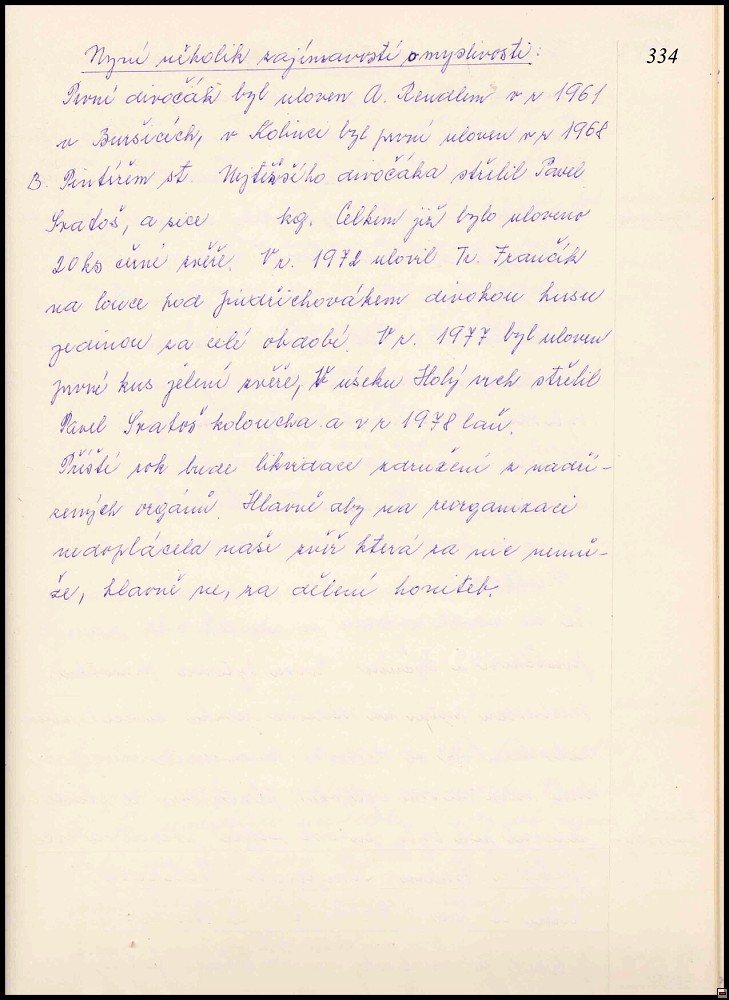 Nyní několik zajímavostí o myslivosti:
334
První divočák byl uloven A. Rendlem v r 1961
v Buršicích, v Kolinci byl první uloven v r 1968
B. Pintířem st. Nejtěžšího divočáka střelil Pavel
Svatoš, a sice kg. Celkem již bylo uloveno
20 ks černé zvěře. V r. 1972 ulovil Fr. Frančík
na louce pod Jindřichovákem divokou husu
jedinou za celé období. V r. 1977 byl uloven
první kus jelení zvěře, V úseku Holý vrch střelil
Pavel Svatoš koloucha a v r 1978 laň.
Příští rok bude likvidace sdružení z nadří-
zených orgánů. Hlavně aby na reorganizaci
nedoplácela naše zvěř která za nic nemů-
že, hlavně ne, za dělení honiteb.